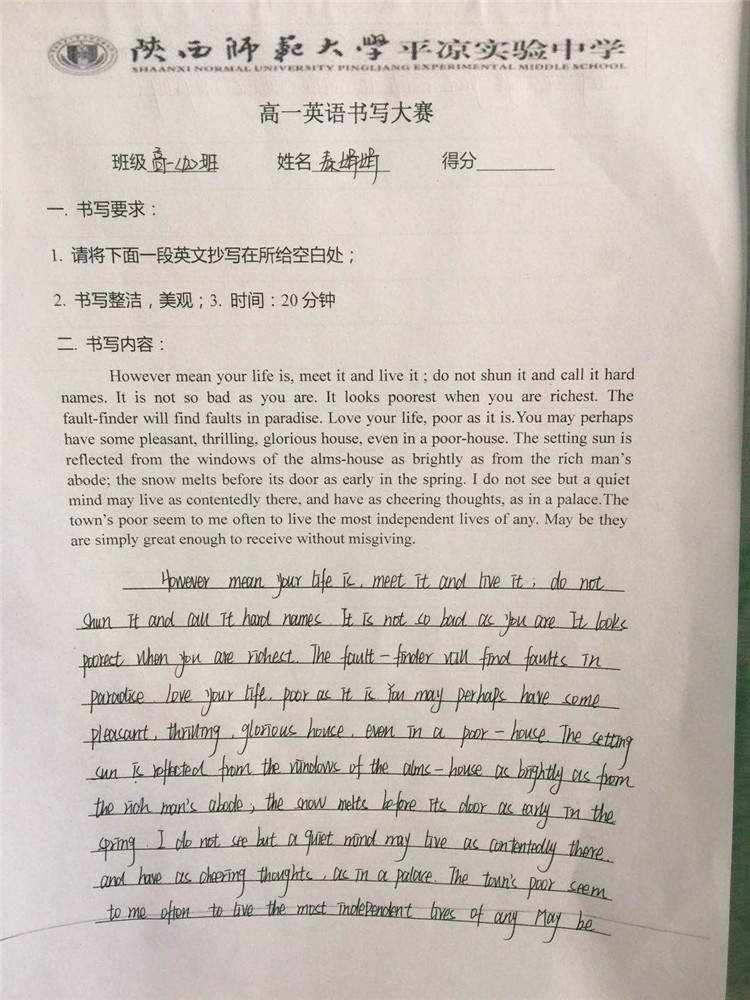 陕西师范大学平凉实验中学
SHAANXI NORMAL UNIVERSITY PINGLIANG EXPERIMENTAL MIDDLE SCHOOL
高一英语书写大赛
班级 高一(4)班 姓名 得分
一. 书写要求：
1. 请将下面一段英文抄写在所给空白处；
2. 书写整洁，美观；3. 时间：20分钟
二. 书写内容：
However mean your life is, meet it and live it ; do not shun it and call it hard
names. It is not so bad as you are. It looks poorest when you are richest. The
fault-finder will find faults in paradise. Love your life, poor as it is.You may perhaps
have some pleasant, thrilling, glorious house, even in a poor-house. The setting sun is
reflected from the windows of the alms-house as brightly as from the rich man's
abode; the snow melts before its door as early in the spring. I do not see but a quiet
mind may live as contentedly there, and have as cheering thoughts, as in a palace.The
town's poor seem to me often to live the most independent lives of any. May be they
are simply great enough to receive without misgiving.
However mean your life is, meet it and live it; do not
shun it and call it hard names. It is not so bad as you are It looks
poorest when you are richest. The fault-finder will find faults in
paradise. Love your life, poor as it is You may perhaps have some
pleasant, thrilling, glorious house, even in a poor-house. The setting
sun is reflected from the windows of the alms-house as brightly as from
the rich man's abode, the snow melts before its door as early in the
spring. I do not see but a quiet mind may live as contentedly there.
and have as cheering thoughts, as in a palace. The town's poor seem
to me often to live the most independent lives of any May be